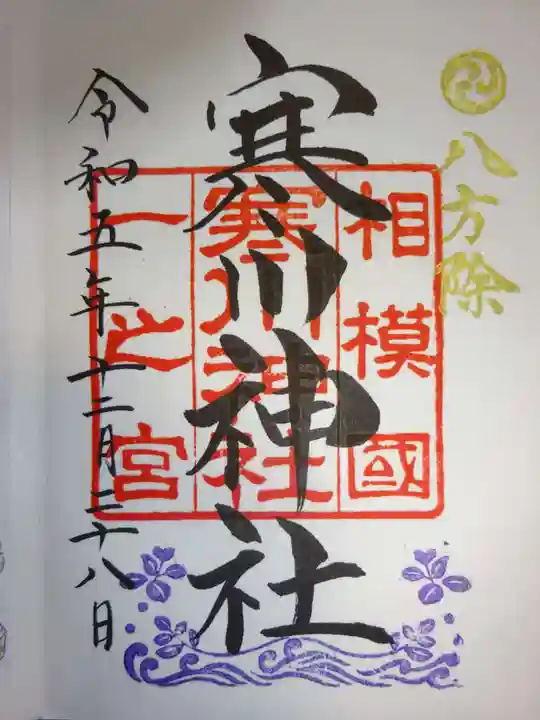 八方除
相模國
寒川神社
寒川神社
一之宮
令和五年十二月二十八日